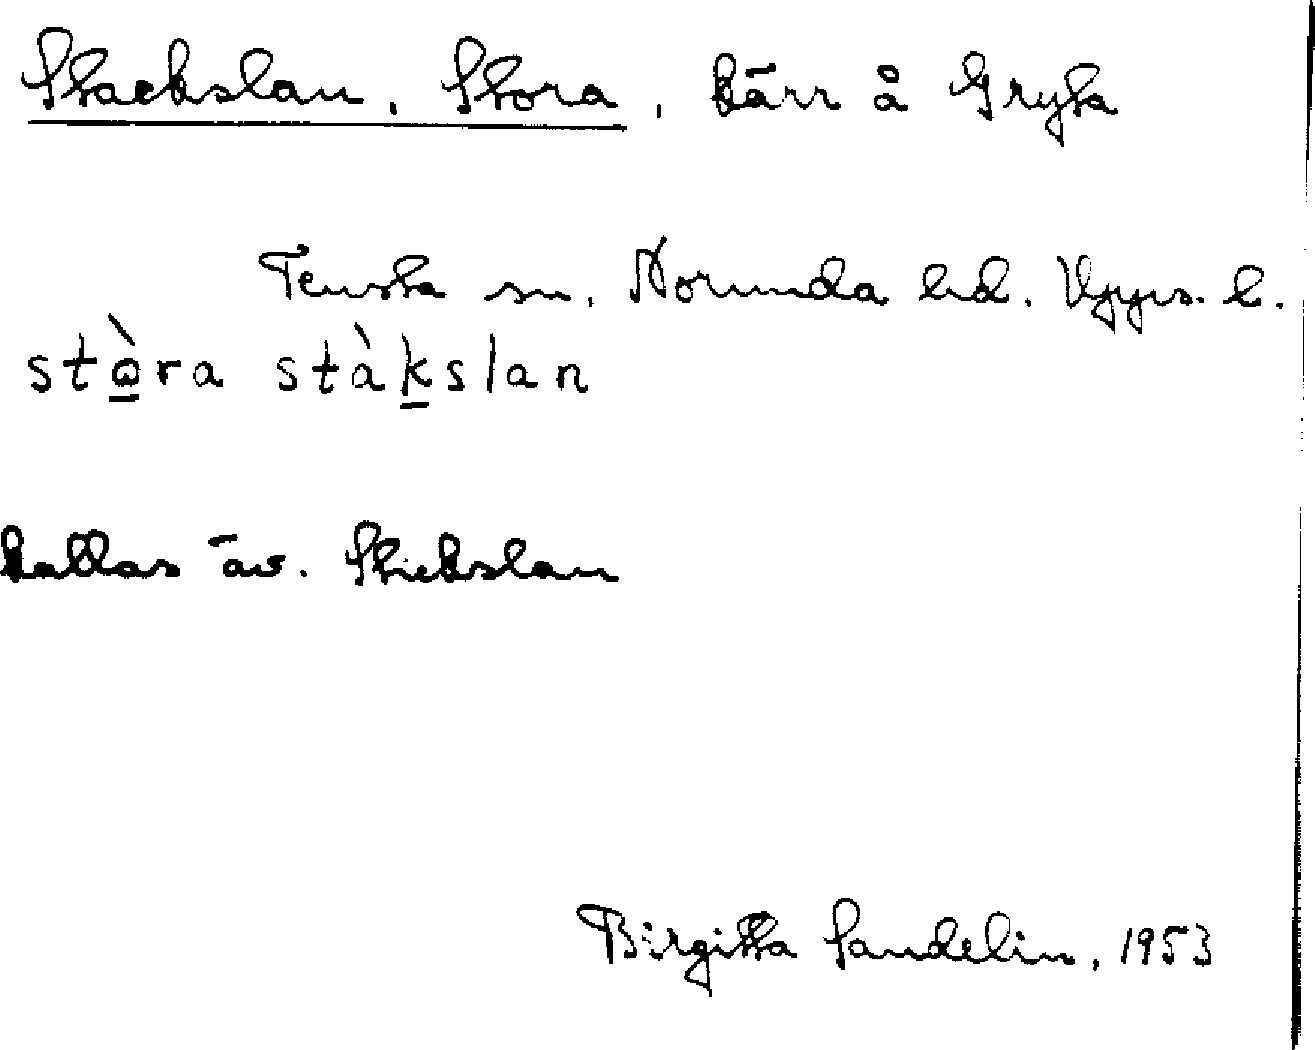 Stackslan, Stora, kärr å Gryta
Tensta sn. Norunda hd. Upps. l.
stòra stàkslan
kallas äv. Stickslan
Birgitta Sandelin, 1953